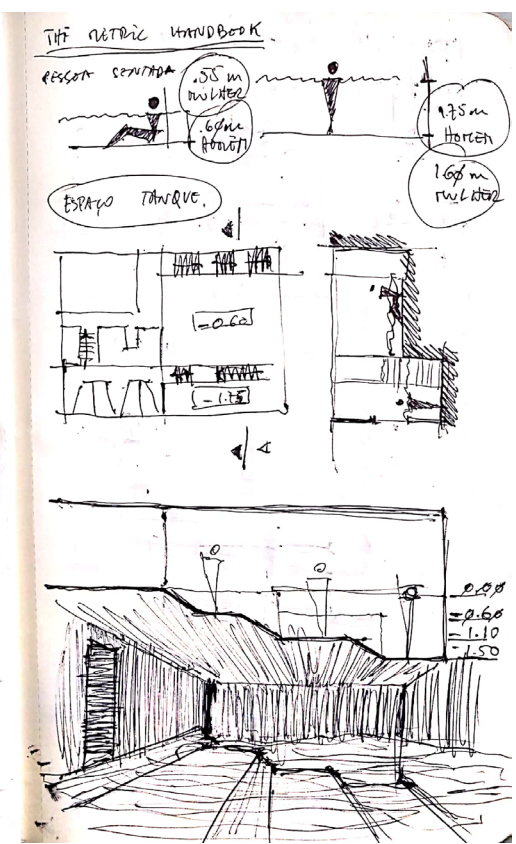 THE METRIC HANDBOOK.
PESSOA SENTADA
.55 m
MULHER
.60 m
HOMEM
1.75 m
HOMEM
1.60 m
MULHER
ESPAÇO TANQUE.
-0.60
-1.75
0.00
-0.60
-1.10
-1.50